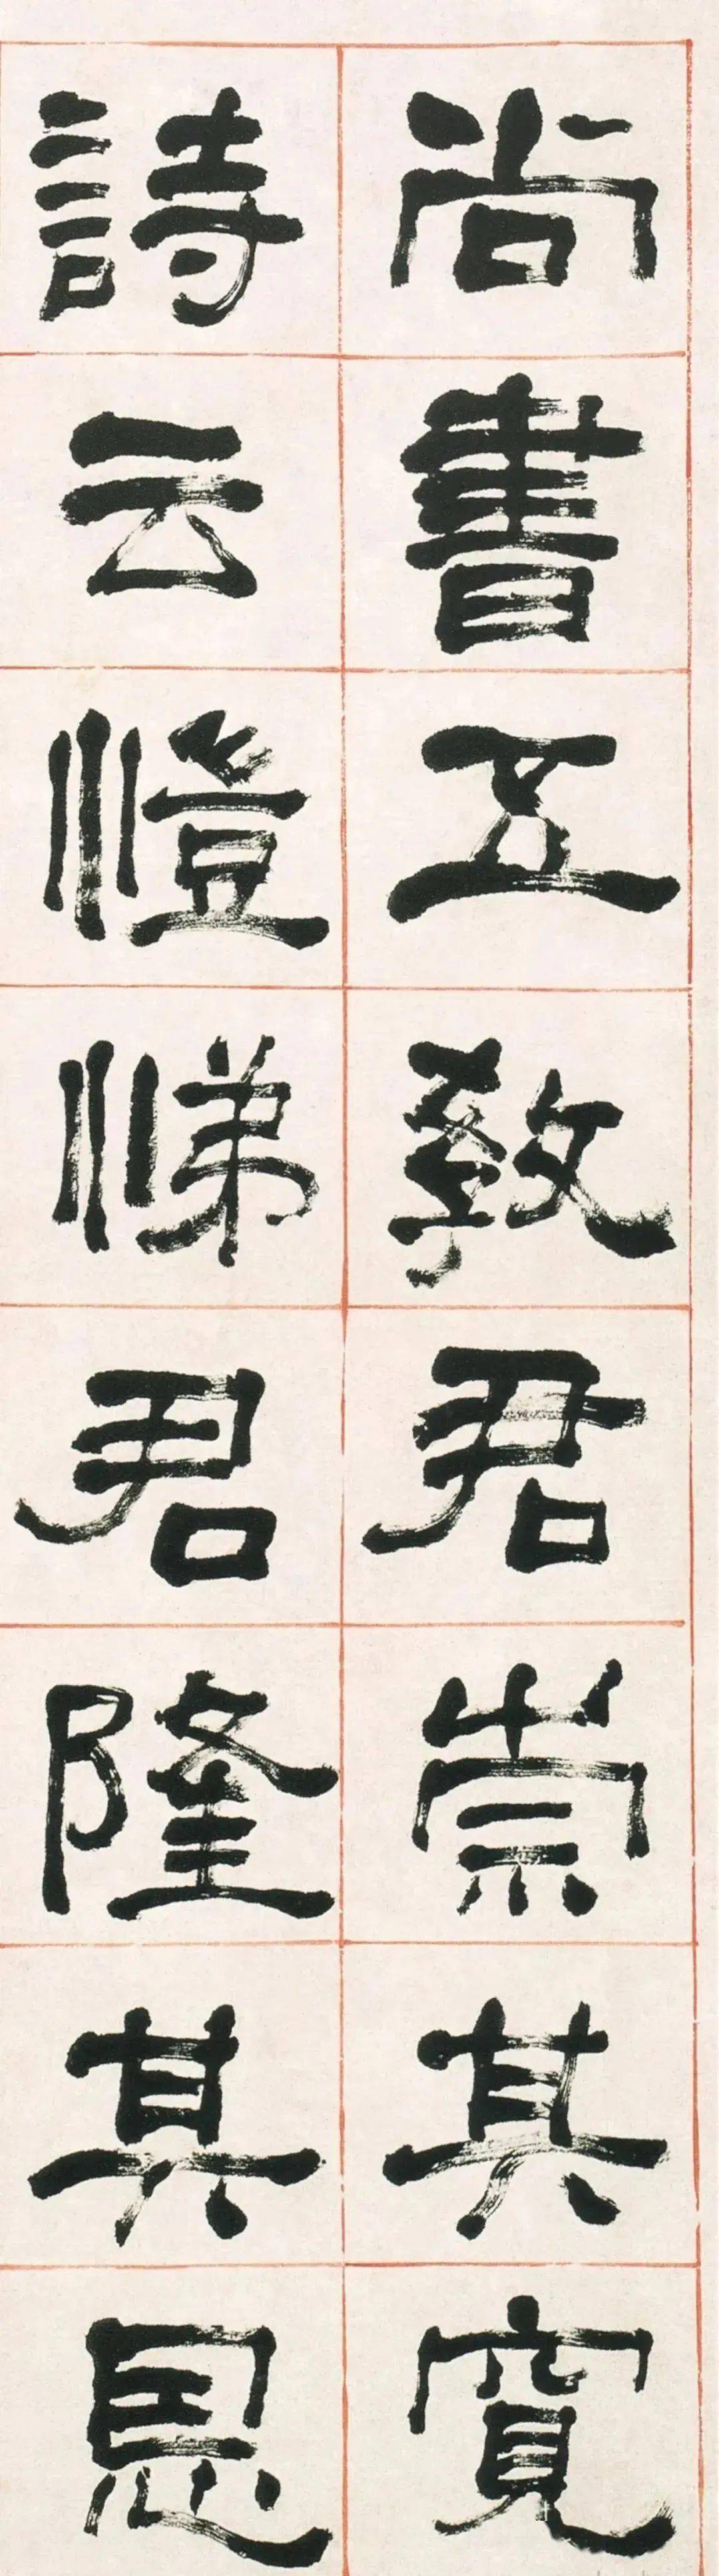 尚書五教君崇其寬
詩云愷悌君隆其恩